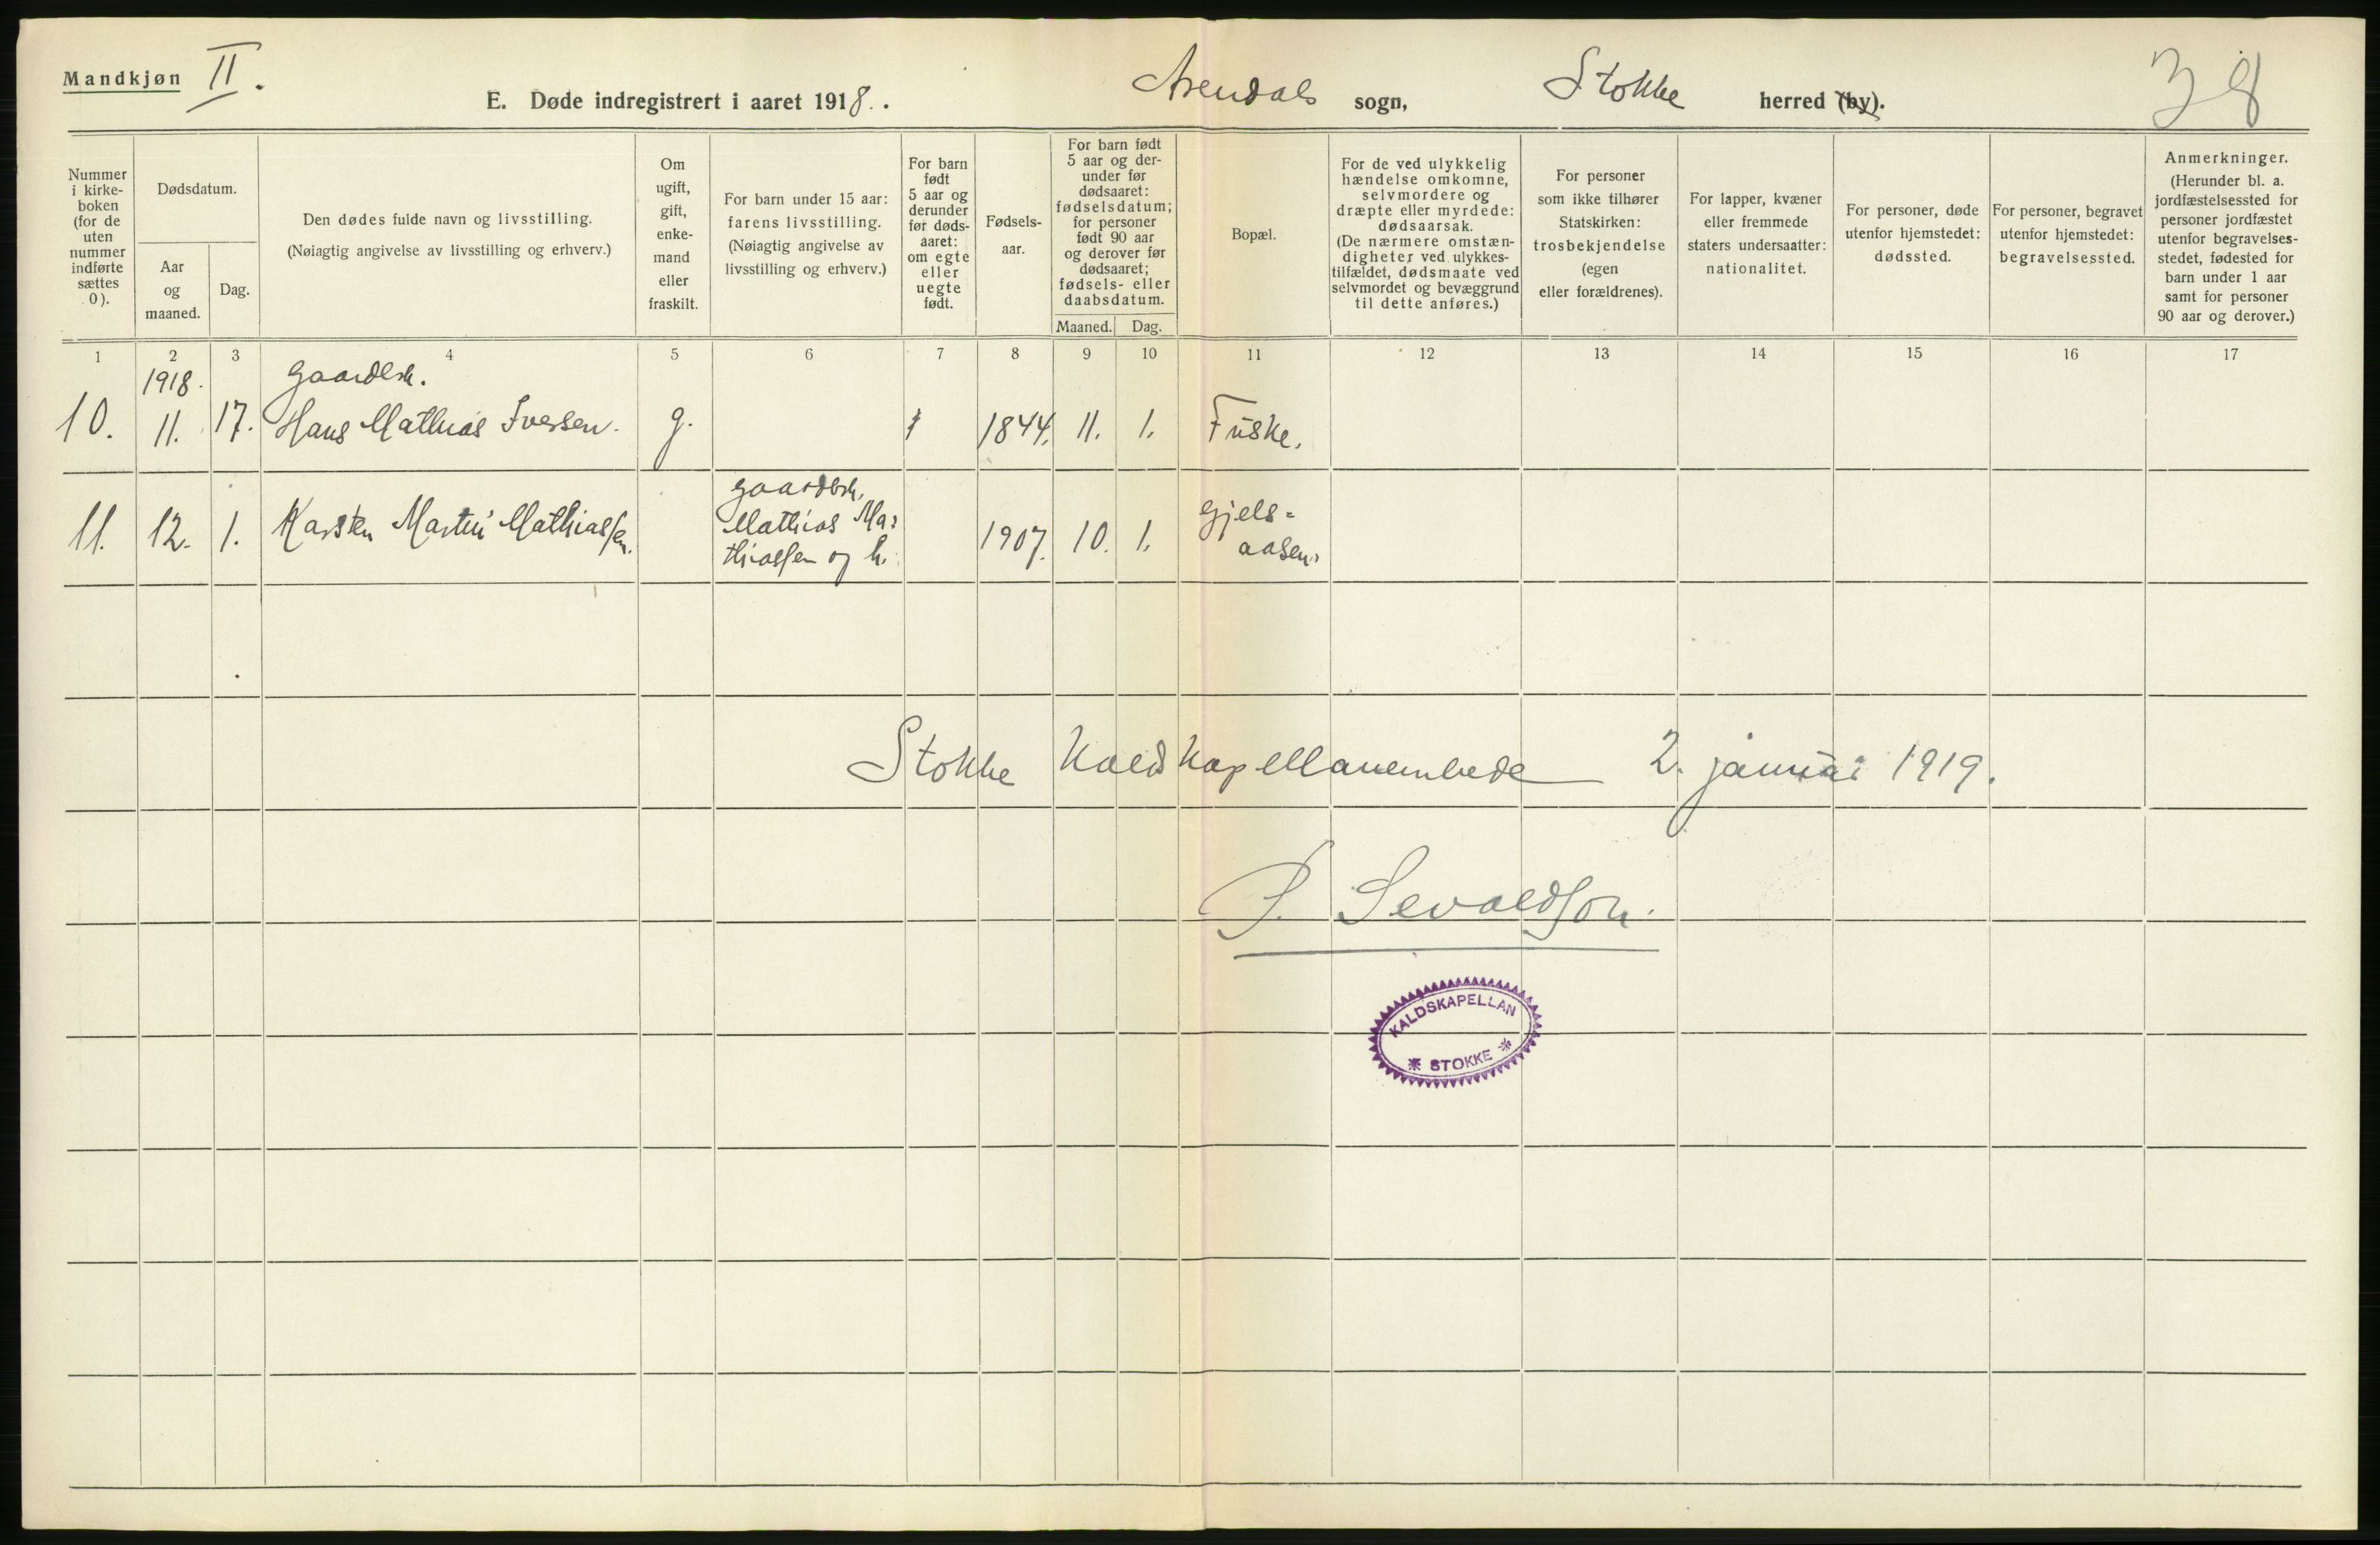 Mandkjøn II.
E. Døde indregistrert i aaret 1918. . Arendals sogn, Stokke herred (by).
38
Nummer
i kirke-
boken
(for de
uten
nummer
indførte
sættes
0).
Dødsdatum.
Aar
og
maaned.
Dag.
Den dødes fulde navn og livsstilling.
(Nøiagtig angivelse av livsstilling og erhverv.)
Om
ugift,
gift,
enke-
mand
eller
fraskilt.
For barn under 15 aar:
farens livsstilling.
(Nøiagtig angivelse av
livsstilling og erhverv.)
For barn
født
5 aar og
derunder
før døds-
aaret:
om egte
eller
uegte
født.
Fødsels-
aar.
For barn født
5 aar og der-
under før
dødsaaret:
fødselsdatum;
for personer
født 90 aar
og derover før
dødsaaret;
fødsels- eller
daabsdatum.
Maaned. Dag.
Bopæl.
For de ved ulykkelig
hændelse omkomne,
selvmordere og
dræpte eller myrdede:
dødsaarsak.
(De nærmere omstæn-
digheter ved ulykkes-
tilfældet, dødsmaate ved
selvmordet og bevæggrund
til dette anføres.)
For personer
som ikke tilhører
Statskirken:
trosbekjendelse
(egen
eller forældrenes).
For lapper, kvæner
eller fremmede
staters undersaatter:
nationalitet.
For personer, døde
utenfor hjemstedet:
dødssted.
For personer, begravet
utenfor hjemstedet:
begravelsessted.
Anmerkninger.
(Herunder bl. a.
jordfæstelsessted for
personer jordfæstet
utenfor begravelses-
stedet, fødested for
barn under 1 aar
samt for personer
90 aar og derover.)
1 2 3 4 5 6 7 8 9 10 11 12 13 14 15 16 17
1918. Gaardbr.
10. 11. 17. Hans Mathias Iversen. g. 1844. 11. 1. Fuske.
gaardbr.
11. 12. 1. Karsten Martin Mathiassen. Mathias Ma= 1907. 10. 1. Gjels=
thiassen og h. aasen.
Stokke Kaldskapellanembede 2. januar 1919.
P. Sevaldson.
KALDSKAPELLAN
* STOKKE *